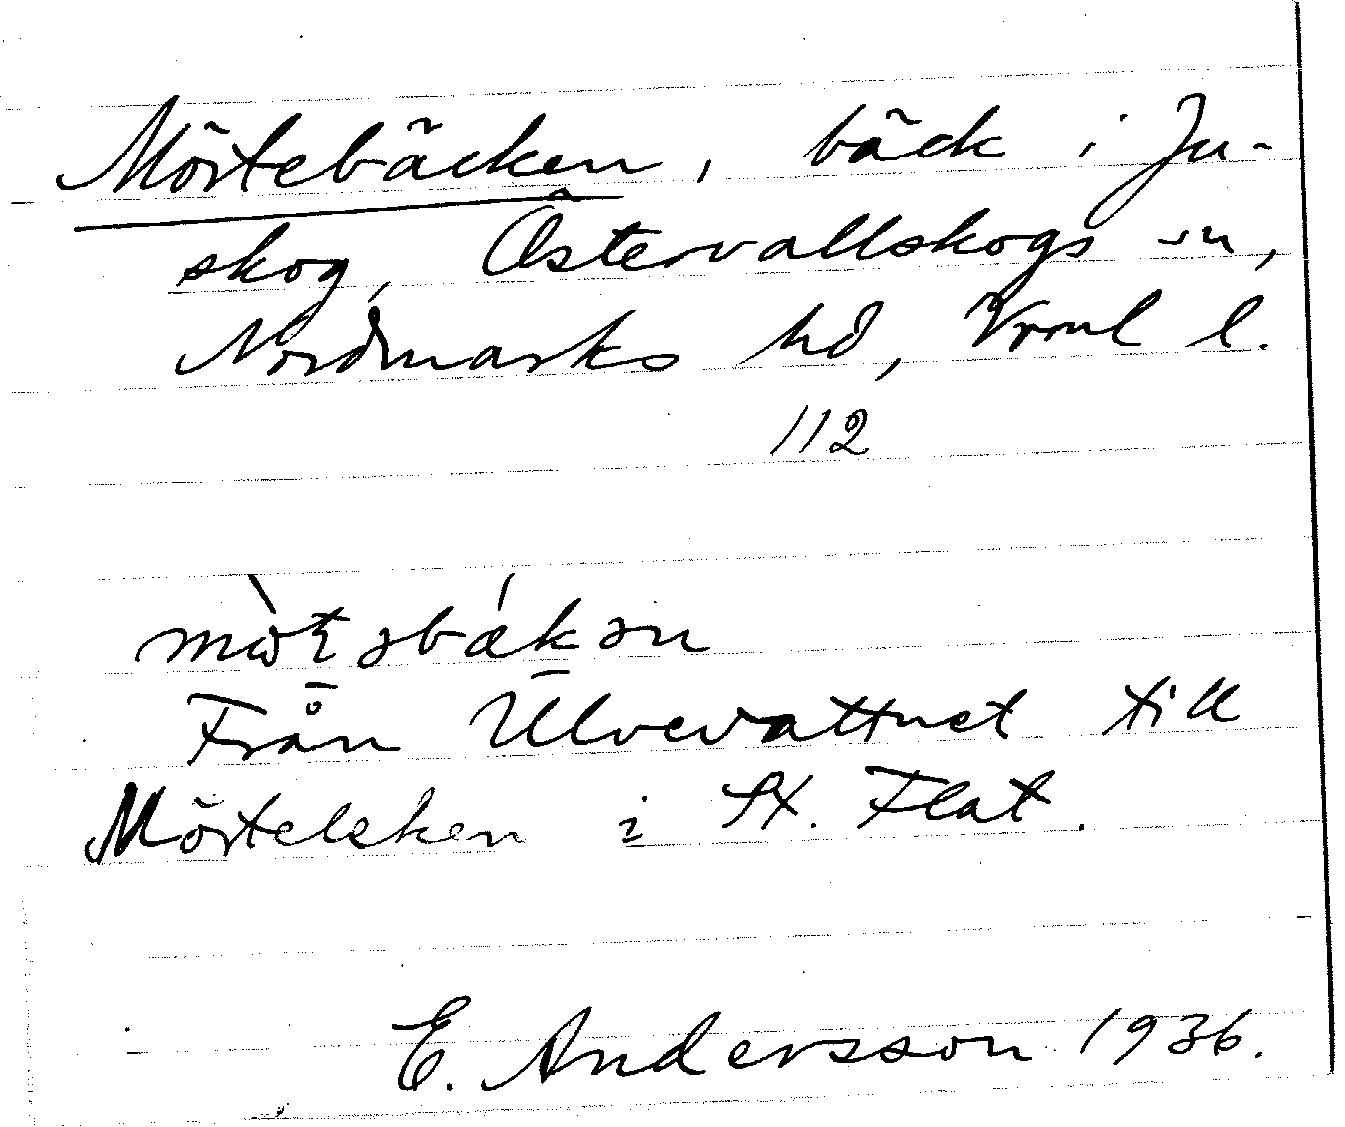 Mörtebäcken, bäck i Ju-
skog, Östervallskogs sn,
Nordmarks hd, Vrml l.
112
Från Ulvevattnet till
Mörtelsken i St. Flat.
E. Andersson 1936.